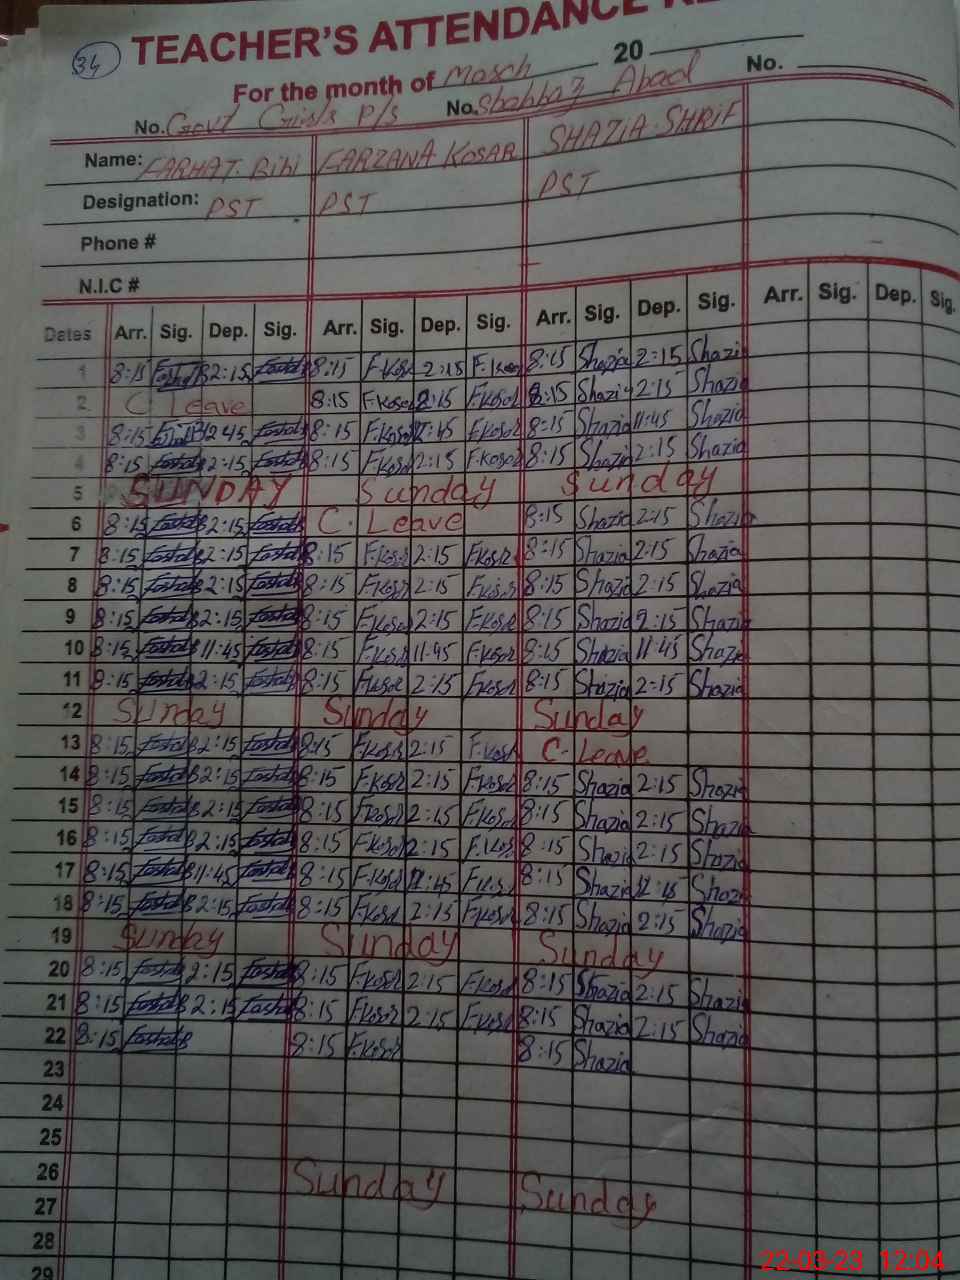 34
TEACHER'S ATTENDANCE RE
For the month of March 20
No. Govt Girls P/S No. Shahbaz Abad No.
Name: FARHAT. Bibi FARZANA KOSAR SHAZIA. SHRIF
Designation: PST PST PST
Phone #
N.I.C #
Dates Arr. Sig. Dep. Sig. Arr. Sig. Dep. Sig. Arr. Sig. Dep. Sig. Arr. Sig. Dep. Sig.
1 8:15 2:15 8:15 F.Kosr 2:15 F.Kosr 8:15 Shazia 2:15 Shazia
2 C Leave 8:15 F.Kosar 2:15 F.Kosar 8:15 Shazia 2:15 Shazia
3 8:15 12:45 8:15 F.Kosar 8:15 Shazia 11:45 Shazia
4 8:15 2:15 8:15 F.Kosar 2:15 F.Kosar 8:15 Shazia 2:15 Shazia
5 SUNDAY Sunday Sunday
6 8:15 2:15 C. Leave 8:15 Shazia 2:15 Shazia
7 8:15 2:15 8:15 F.Kosar 2:15 F.Kosar 8:15 Shazia 2:15 Shazia
8 8:15 2:15 8:15 F.Kosar 2:15 F.Kosar 8:15 Shazia 2:15 Shazia
9 8:15 2:15 8:15 F.Kosar 2:15 F.Kosar 8:15 Shazia 2:15 Shazia
10 8:15 11:45 8:15 F.Kosar 11:45 F.Kosar 8:15 Shazia 11:45 Shazia
11 8:15 2:15 8:15 F.Kosar 2:15 F.Kosar 8:15 Shazia 2:15 Shazia
12 Sunday Sunday Sunday
13 8:15 2:15 8:15 F.Kosar 2:15 F.Kosr C. Leave
14 8:15 2:15 8:15 F.Kosar 2:15 F.Kosar 8:15 Shazia 2:15 Shazia
15 8:15 2:15 8:15 F.Kosar 2:15 F.Kosar 8:15 Shazia 2:15 Shazia
16 8:15 2:15 8:15 F.Kosar 2:15 F.Kosr 8:15 Shazia 2:15 Shazia
17 8:15 11:45 8:15 F.Kosar 8:15 Shazia Shazia
18 8:15 2:15 8:15 F.Kosar 2:15 F.Kosar 8:15 Shazia 2:15 Shazia
19 Sunday Sunday Sunday
20 8:15 2:15 8:15 F.Kosar 2:15 F.Kosar 8:15 Shazia 2:15 Shazia
21 8:15 2:15 8:15 F.Kosar 2:15 F.Kosar 8:15 Shazia 2:15 Shazia
22 8:15 8:15 F.Kosar 8:15 Shazia
23
24
25
26 Sunday Sunday
27
28
29
22-03-23 12:04